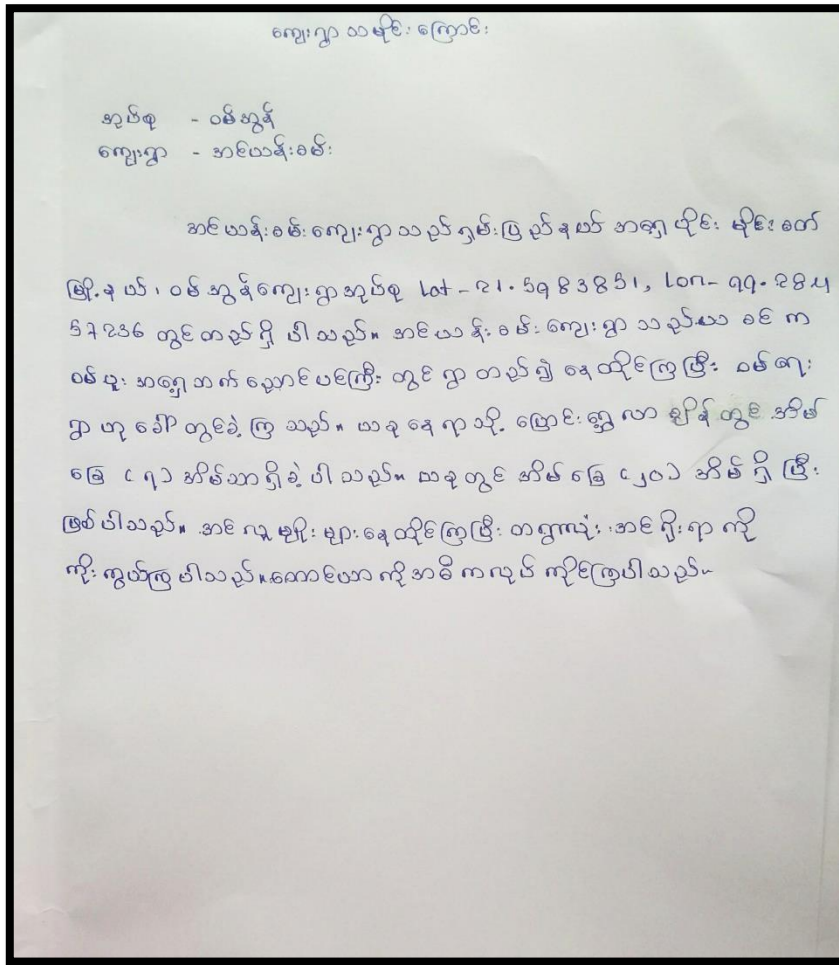 ကျေးရွာ သမိုင်း ကြောင်း
အုပ်စု - ဝမ်အွန်
ကျေးရွာ - အင်ယန်းစမ်း
အင်ယန်းစမ်းကျေးရွာသည် ရှမ်းပြည်နယ် အရှေ့ပိုင်း မိုင်းခတ်
မြို့နယ်၊ ဝမ်အွန်ကျေးရွာအုပ်စု Lat-21.5983851, Lon-99.284
57236 တွင်တည်ရှိ ပါသည်။ အင်ယန်းစမ်းကျေးရွာ သည်ယခင်က
ဝမ်ပူး အရှေ့ဘက်ညောင်ပင်ကြီး တွင်ရွာတည်၍ နေထိုင်ကြပြီး ဝမ်ရေး
ရွာ ဟု ခေါ်တွင်ခဲ့ ကြ သည်။ ယခုနေရာသို့ ပြောင်းရွှေ့လာ ချိန်တွင် အိမ်
ခြေ (၇) အိမ်သာရှိခဲ့ ပါသည်။ ယခုတွင် အိမ်ခြေ (၂၀) အိမ်ရှိ ပြီး
ဖြစ်ပါသည်။ အင် လူမျိုး များနေထိုင်ကြပြီး တရွာလုံး အင်ရိုးရာ ကို
ကိုးကွယ်ကြ ပါသည်။ တောင်ယာ ကို အဓိကလုပ် ကိုင်ကြပါသည်။